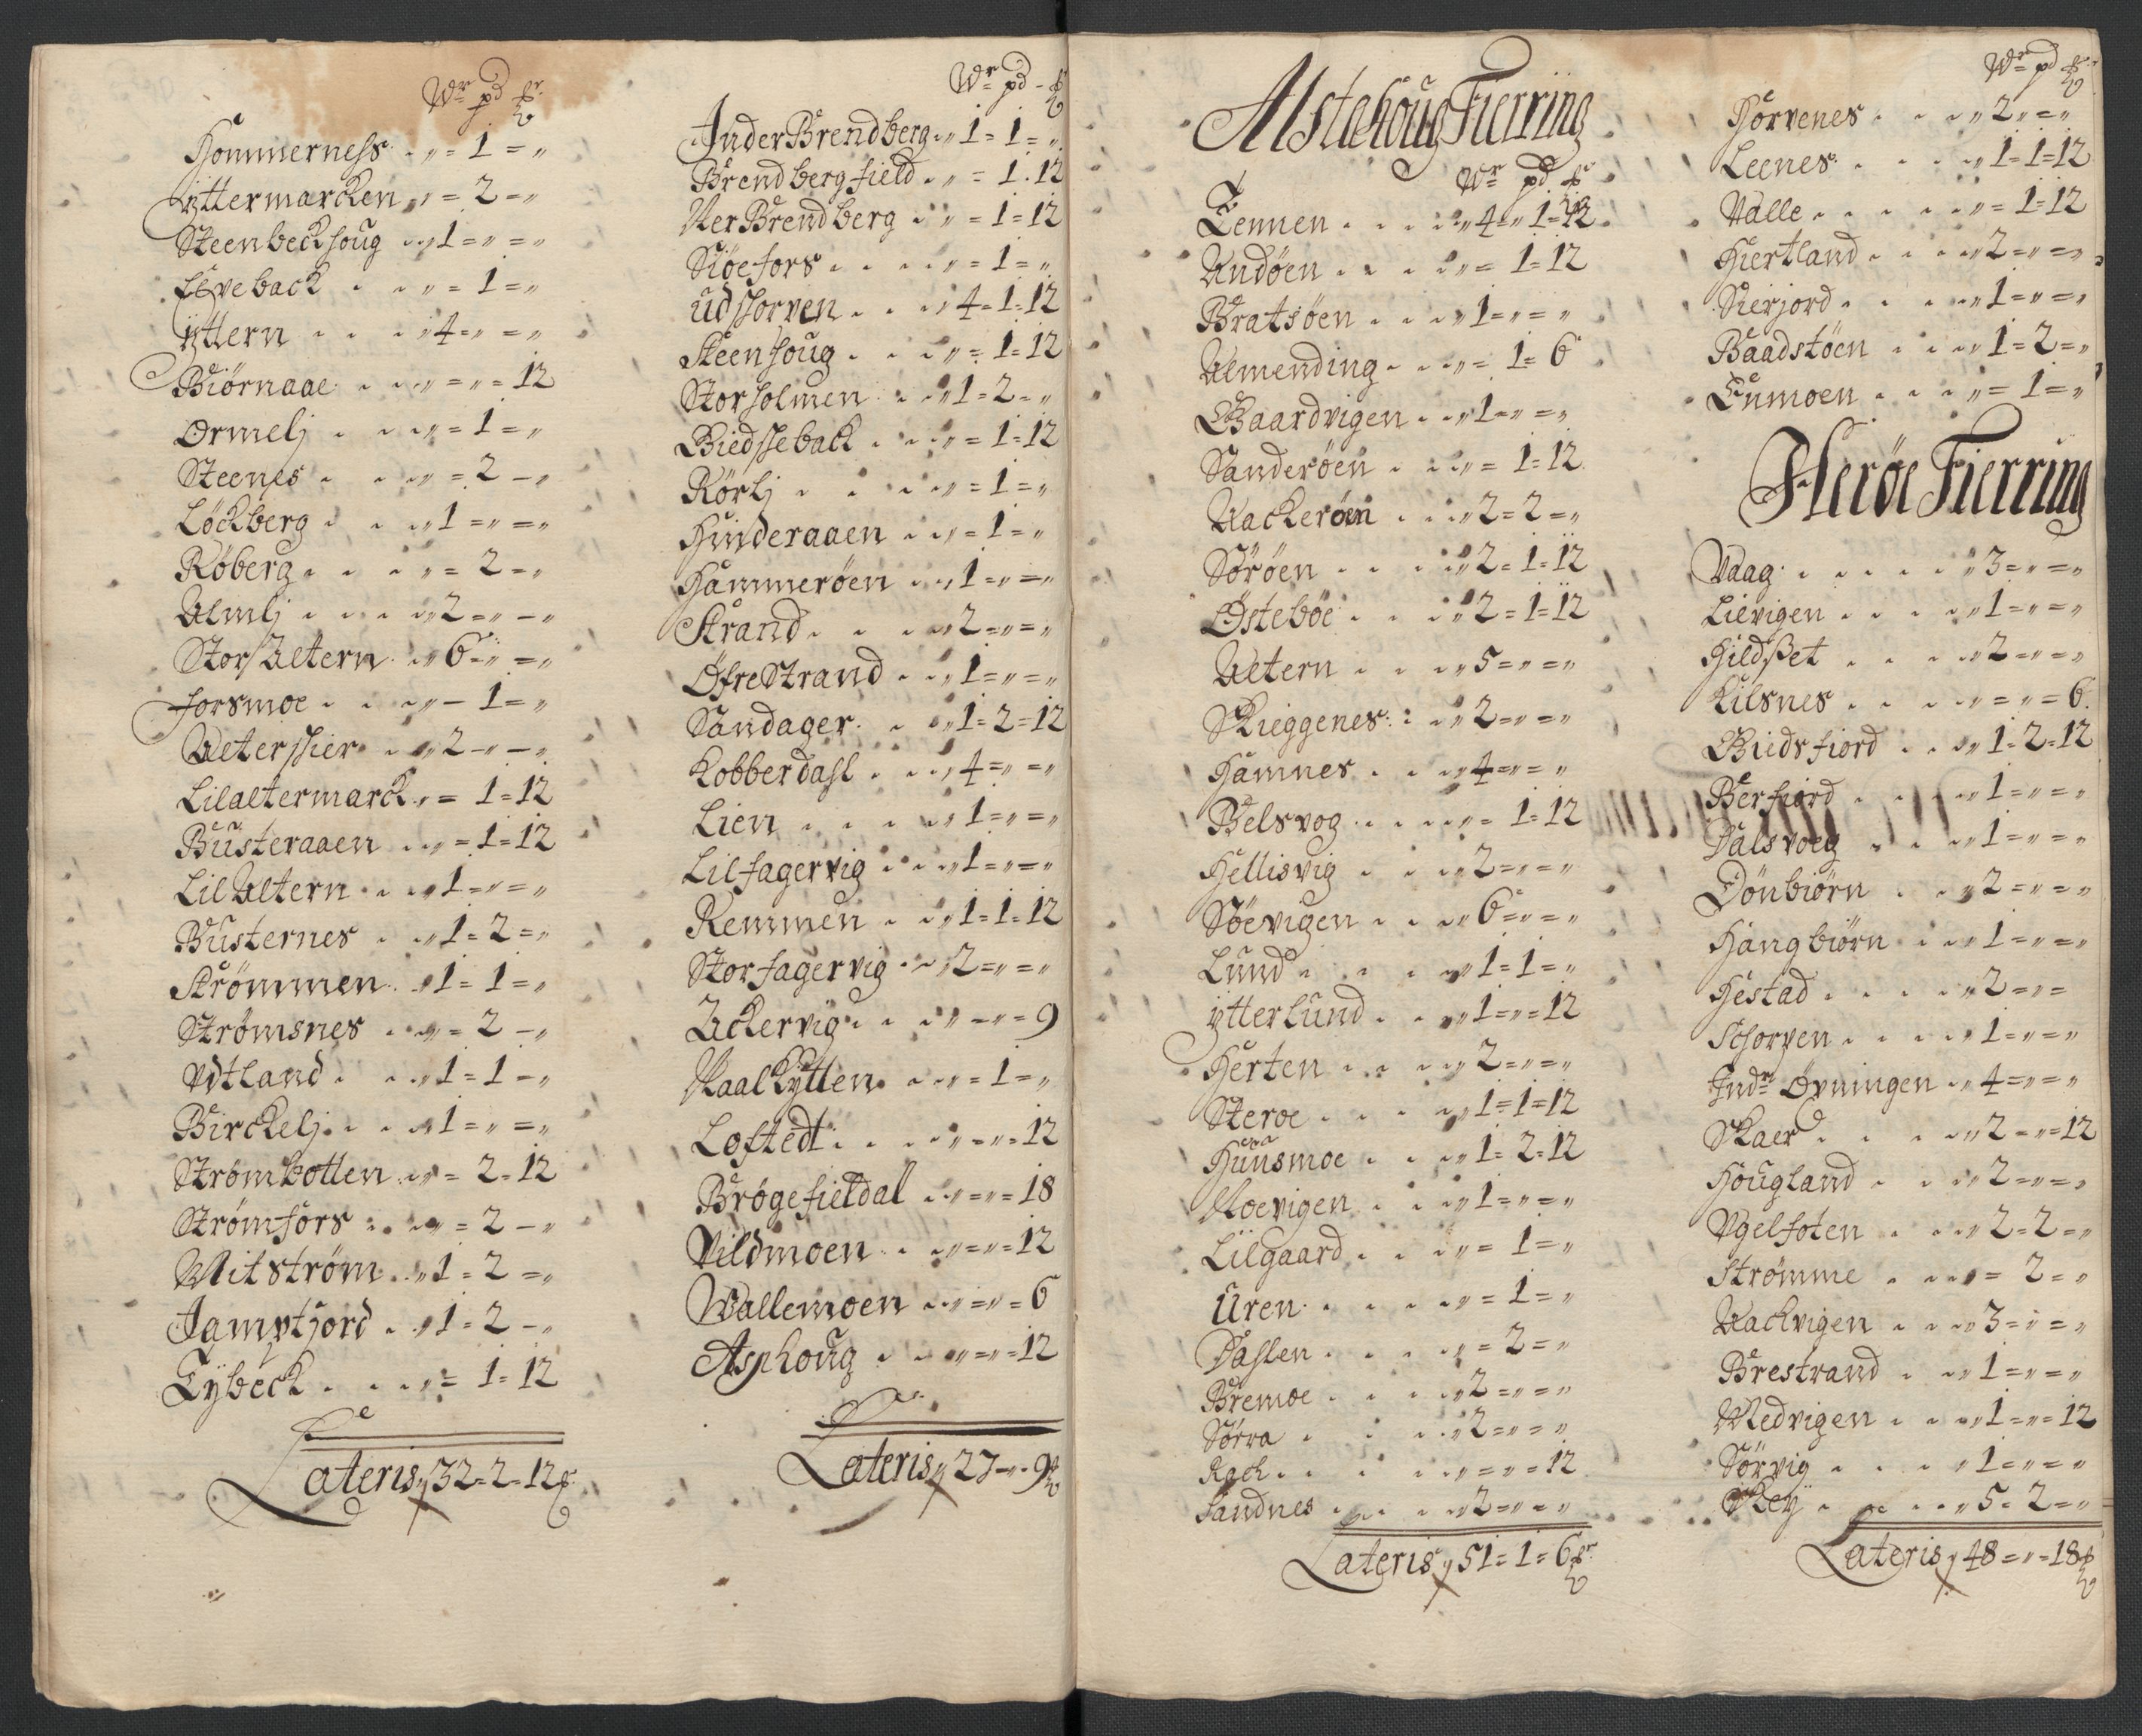 Wr pd
Hommerness „ = 1 = „
Yttermarcken „ = 2 = „
Steenbeckhoug „ 1 = „ = „
Leveback „ = 1 = „
Yttern „ 4 = „ = „
Biörnaae „ = „ = 12
Ormelj „ = 1 = „
Steenes „ = 2 – „
Löckberg „ 1 = „ = „
Röberg „ = 2 = „
Almlj „ 2 = „ – „
Stor Altern „ 6 = „ = „
forsmoe „ – 1 = „
Alterskier „ 2 – „ – „
Lilaltermarck „ = 1 = 12
Busteraaen „ = 1 = 12
Lil Altern „ 1 = „ = „
Busternes „ 1 = 2 = „
Strömmen „ 1 = 1 = „
Strømsnes „ = 2 – „
Vdtland „ 1 = 1 – „
Birckelj „ 1 = „ = „
Strømbotten „ = 2 = 12
Strømfors „ = 2 – „
Mitström „ 1 = 2 = „
Jamptjord „ 1 = 2 – „
Tybeck „ = 1 = 12
Lateris „ 32 = 2 = 12
Wr pd
Inder Brendberg „ 1 = 1 = „
Brendbergfield „ = 1 . 12
Ner Brendberg „ = 1 = 12
Siöefors „ = 1 = „
Udshorven „ 4 = 1 = 12
Steenhoug „ = 1 = 12
Storholmen „ 1 = 2 = „
Giedsseback „ = 1 = 12
Rörlj „ = 1 = „
Hinderaaen „ = 1 = „
Hammeröen „ 1 = „ = „
Strand „ 2 = „ = „
Öfre Strand „ 1 = „ = „
Sandager „ 1 = 2 = 12
Kobberdahl „ 4 = „ = „
Lien „ 1 = „ = „
Lilfagervig „ 1 = „ = „
Remmen „ 1 = 1 = 12
Storfagervig „ 2 = „ = „
Ackervig „ – „ = 9
Raalkytten „ = 1 = „
Loftedt „ = „ = 12
Brögefieldal „ = „ = 18
Vildmoen „ = „ = 12
Wallemoen „ = „ = 6
Asphoug „ = „ = 12
Lateris „ 27 – „ – 9
Alstahoug Fierring
Wr pd
Tennen „ 4 = 1 = 12
Andöen „ = 1 = 12
Bratsöen „ 1 = „ = „
Almending „ = 1 = 6
Gaardvigen „ 1 = „ = „
Sanderöen „ = 1 = 12
Aackeröen „ 2 = 2 = „
Söröen „ 2 = 1 = 12
Östeböe „ 2 = 1 = 12
Altern „ 5 = „ = „
Skieggenes „ 2 = „ = „
Hamnes „ 4 = „ = „
Belsvog „ = 1 = 12
Hellisvig „ 2 = „ = „
Söevigen „ 6 = „ = „
Lund „ 1 = 1 = „
Ytterlund „ 1 = „ = 12
Herten „ 2 = „ = „
Steroe „ 1 = 1 = 12
Huusmoe „ 1 = 2 = 12
Moevigen „ 1 = „ = „
Lilgaard „ = 1 = „
Uren „ = 1 = „
Dahlen „ = 2 = „
Bremoe „ 2 = „ = „
Sörra „ 2 = „ = „
Rach „ = „ = 12
Sandnes „ 2 = „ = „
Lateris „ 51 = 1 = 6
Wr pd
Horvenes „ 2 „ = „
Leenes „ 1 = 1 = 12
Valle „ = 1 = 12
Hiertland „ 2 = „ = „
Sierjord „ 1 = „ = „
Baadstöen „ 1 = 2 = „
Tumoen „ = 1 = „
Heröe Fierring
Vaag „ 3 = „ = „
Lievigen „ 1 = „ = „
Hildßet „ 2 = „ = „
Kilsnes „ = „ = 6
Giedsfiord „ 1 = 2 = 12
Berfiord „ 1 = „ = „
Dalsvoeg „ 1 = „ = „
Dönbiörn „ 2 = „ = „
Hangbiörn „ 1 = „ = „
Hestad „ 2 = „ =
Schorven „ 1 = „ = „
Indr Övningen „ 4 = „ = „
Skaer „ 2 = „ = 12
Hougland „ 2 = „ = „
Vgelfoten „ 2 = 2 = „
Strømme „ = 2 = „
Aachvigen „ 3 = „ = „
Brestrand „ 1 = „ = „
Medvigen „ 1 = „ = 12
Sörvig „ 1 = „ = „
Skey „ 5 = 2 = „
Lateris „ 48 = „ = 18